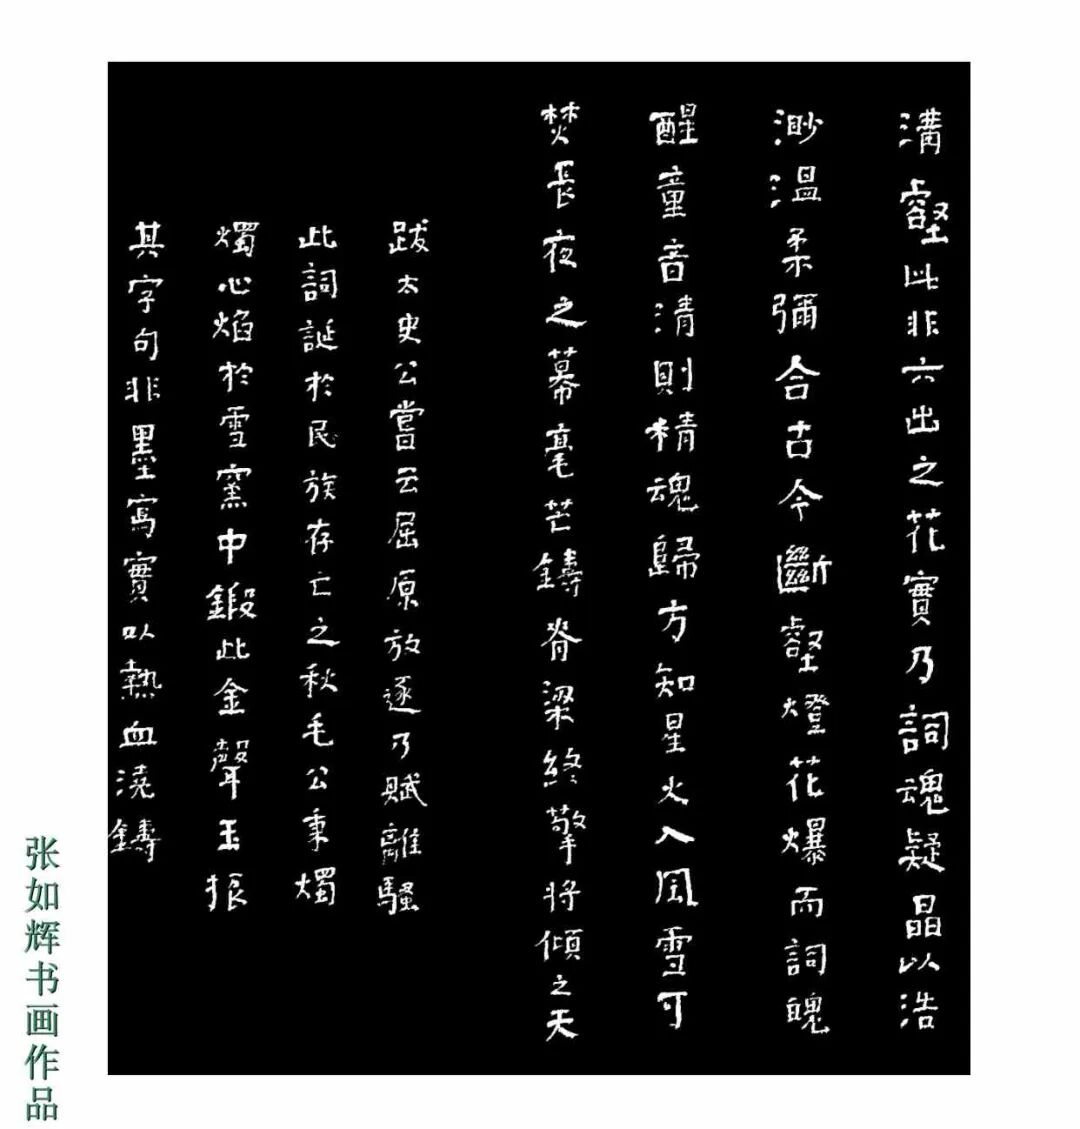 溝壑此非六出之花實乃詞魂凝晶以浩
渺溫柔彌合古今斷壑燈花爆而詞魄
醒童音清則精魂歸方知星火入風雪可
焚長夜之幕毫芒鑄脊梁終擎將傾之天
跋太史公嘗云屈原放逐乃賦離騷
此詞誕於民族存亡之秋毛公秉燭
燭心焰於雪窯中鍛此金聲玉振
其字句非墨寫實以熱血澆鑄
张如辉书画作品